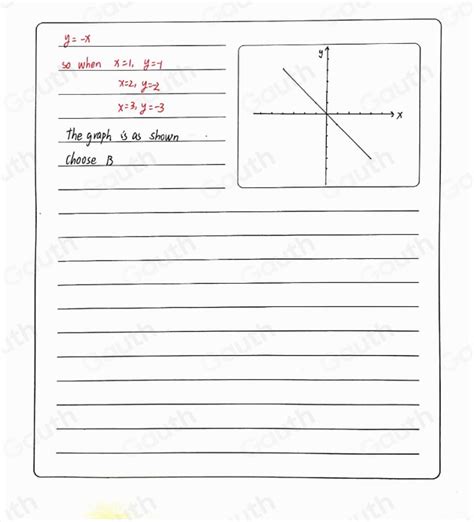 y = -x
so when x=1, y=-1
x=2, y=-2
x=3, y=-3
the graph is as shown .
Choose B
y
x
Gauth